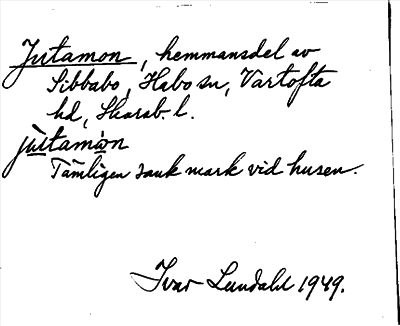 Jutamon, hemmansdel av
Sibbabo, Habo sn, Vartofta
hd, Skarab. l.
jùtamòn
Tämligen sank mark vid husen.
Ivar Lundahl 1949.